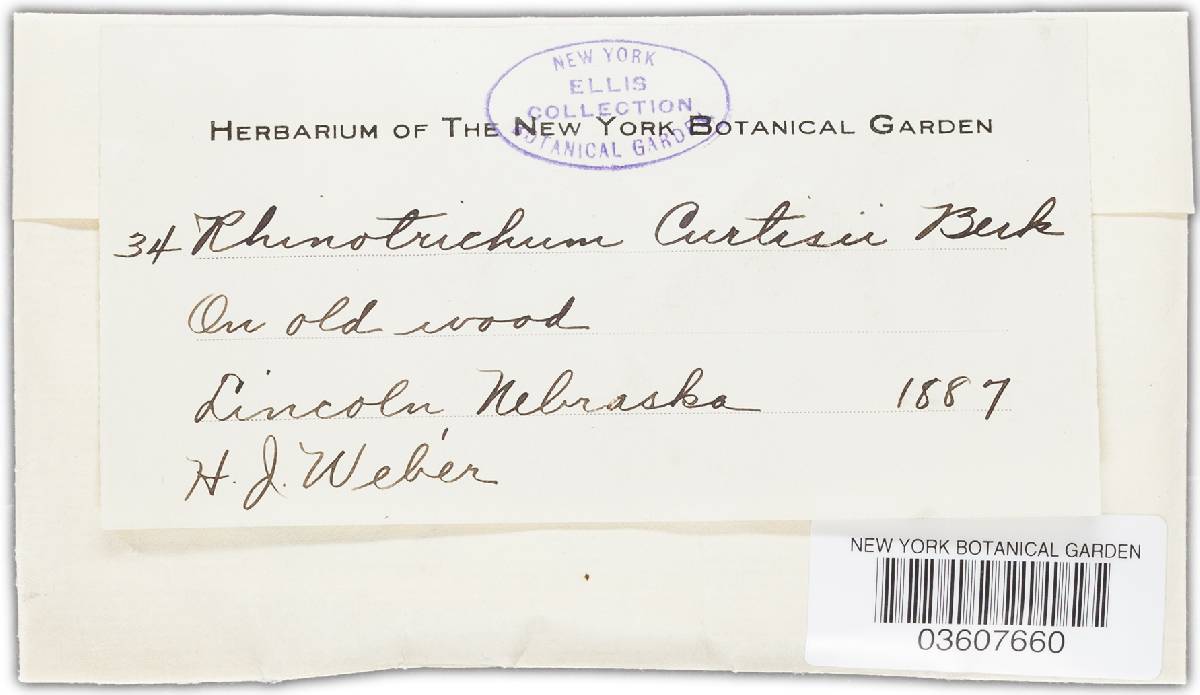 NEW YORK
ELLIS
COLLECTION
BOTANICAL GARDEN
HERBARIUM OF THE NEW YORK BOTANICAL GARDEN
34 Rhinotrichum Curtisii Berk
On old wood
Lincoln, Nebraska 1887
H. J. Weber
NEW YORK BOTANICAL GARDEN
03607660